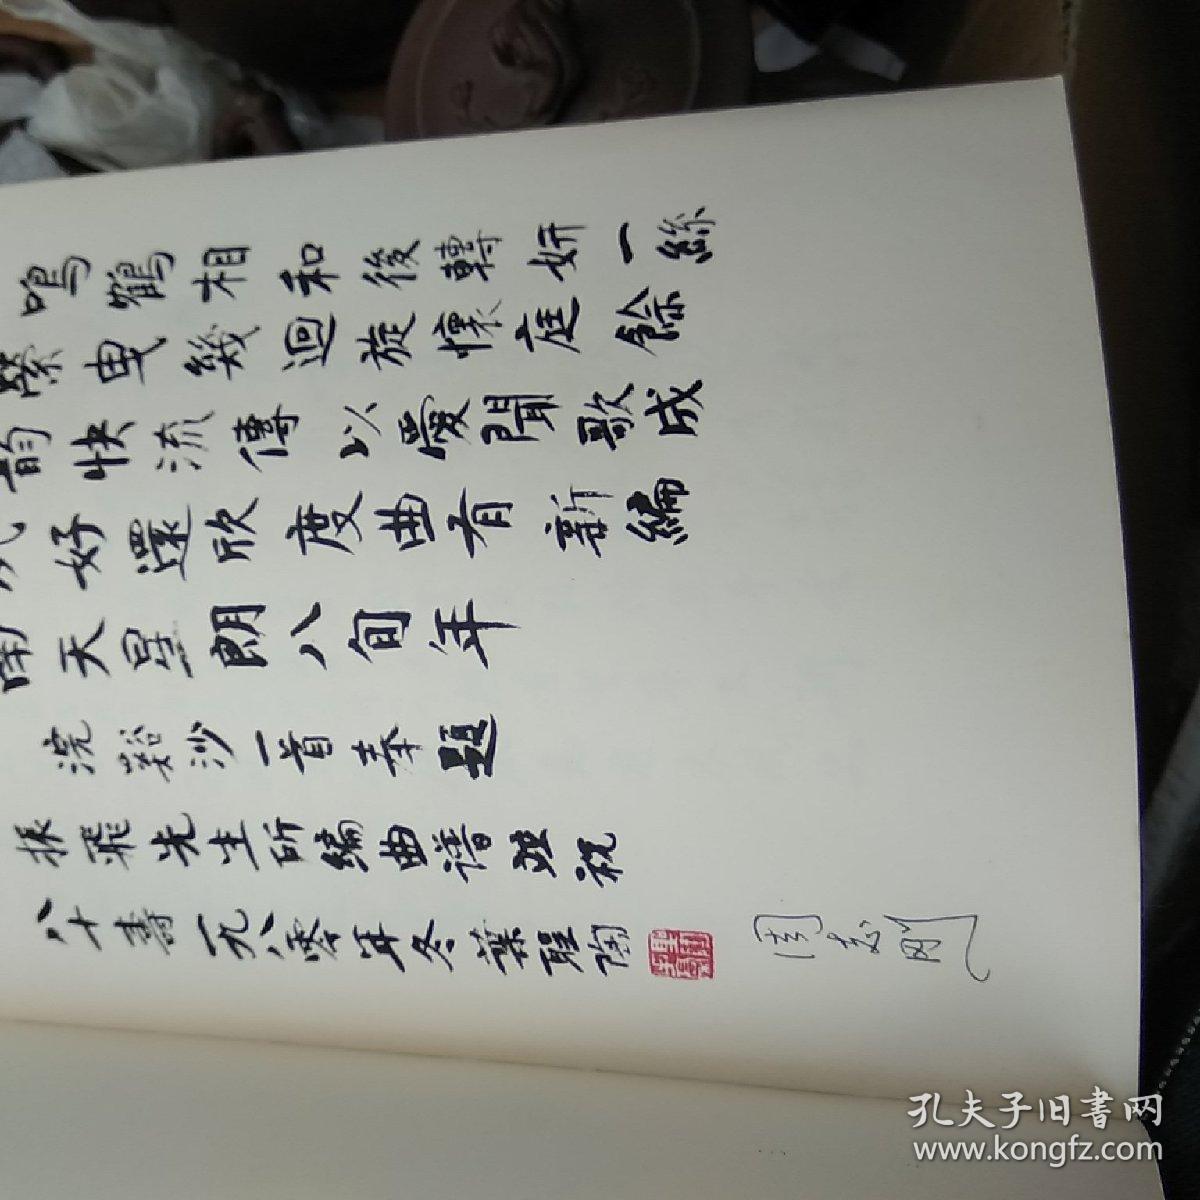 鳴鶴相和後轉妍一絲
縈曳幾迴旋懷庭餘
韵快流傳以愛聞歌成
好還欣度曲有新編
南天星朗八旬年
浣谿沙一首奉題
振飛先生所編曲譜並祝
八十壽一九八零年冬葉聖陶
周志刚
孔夫子旧書网
www.kongfz.com